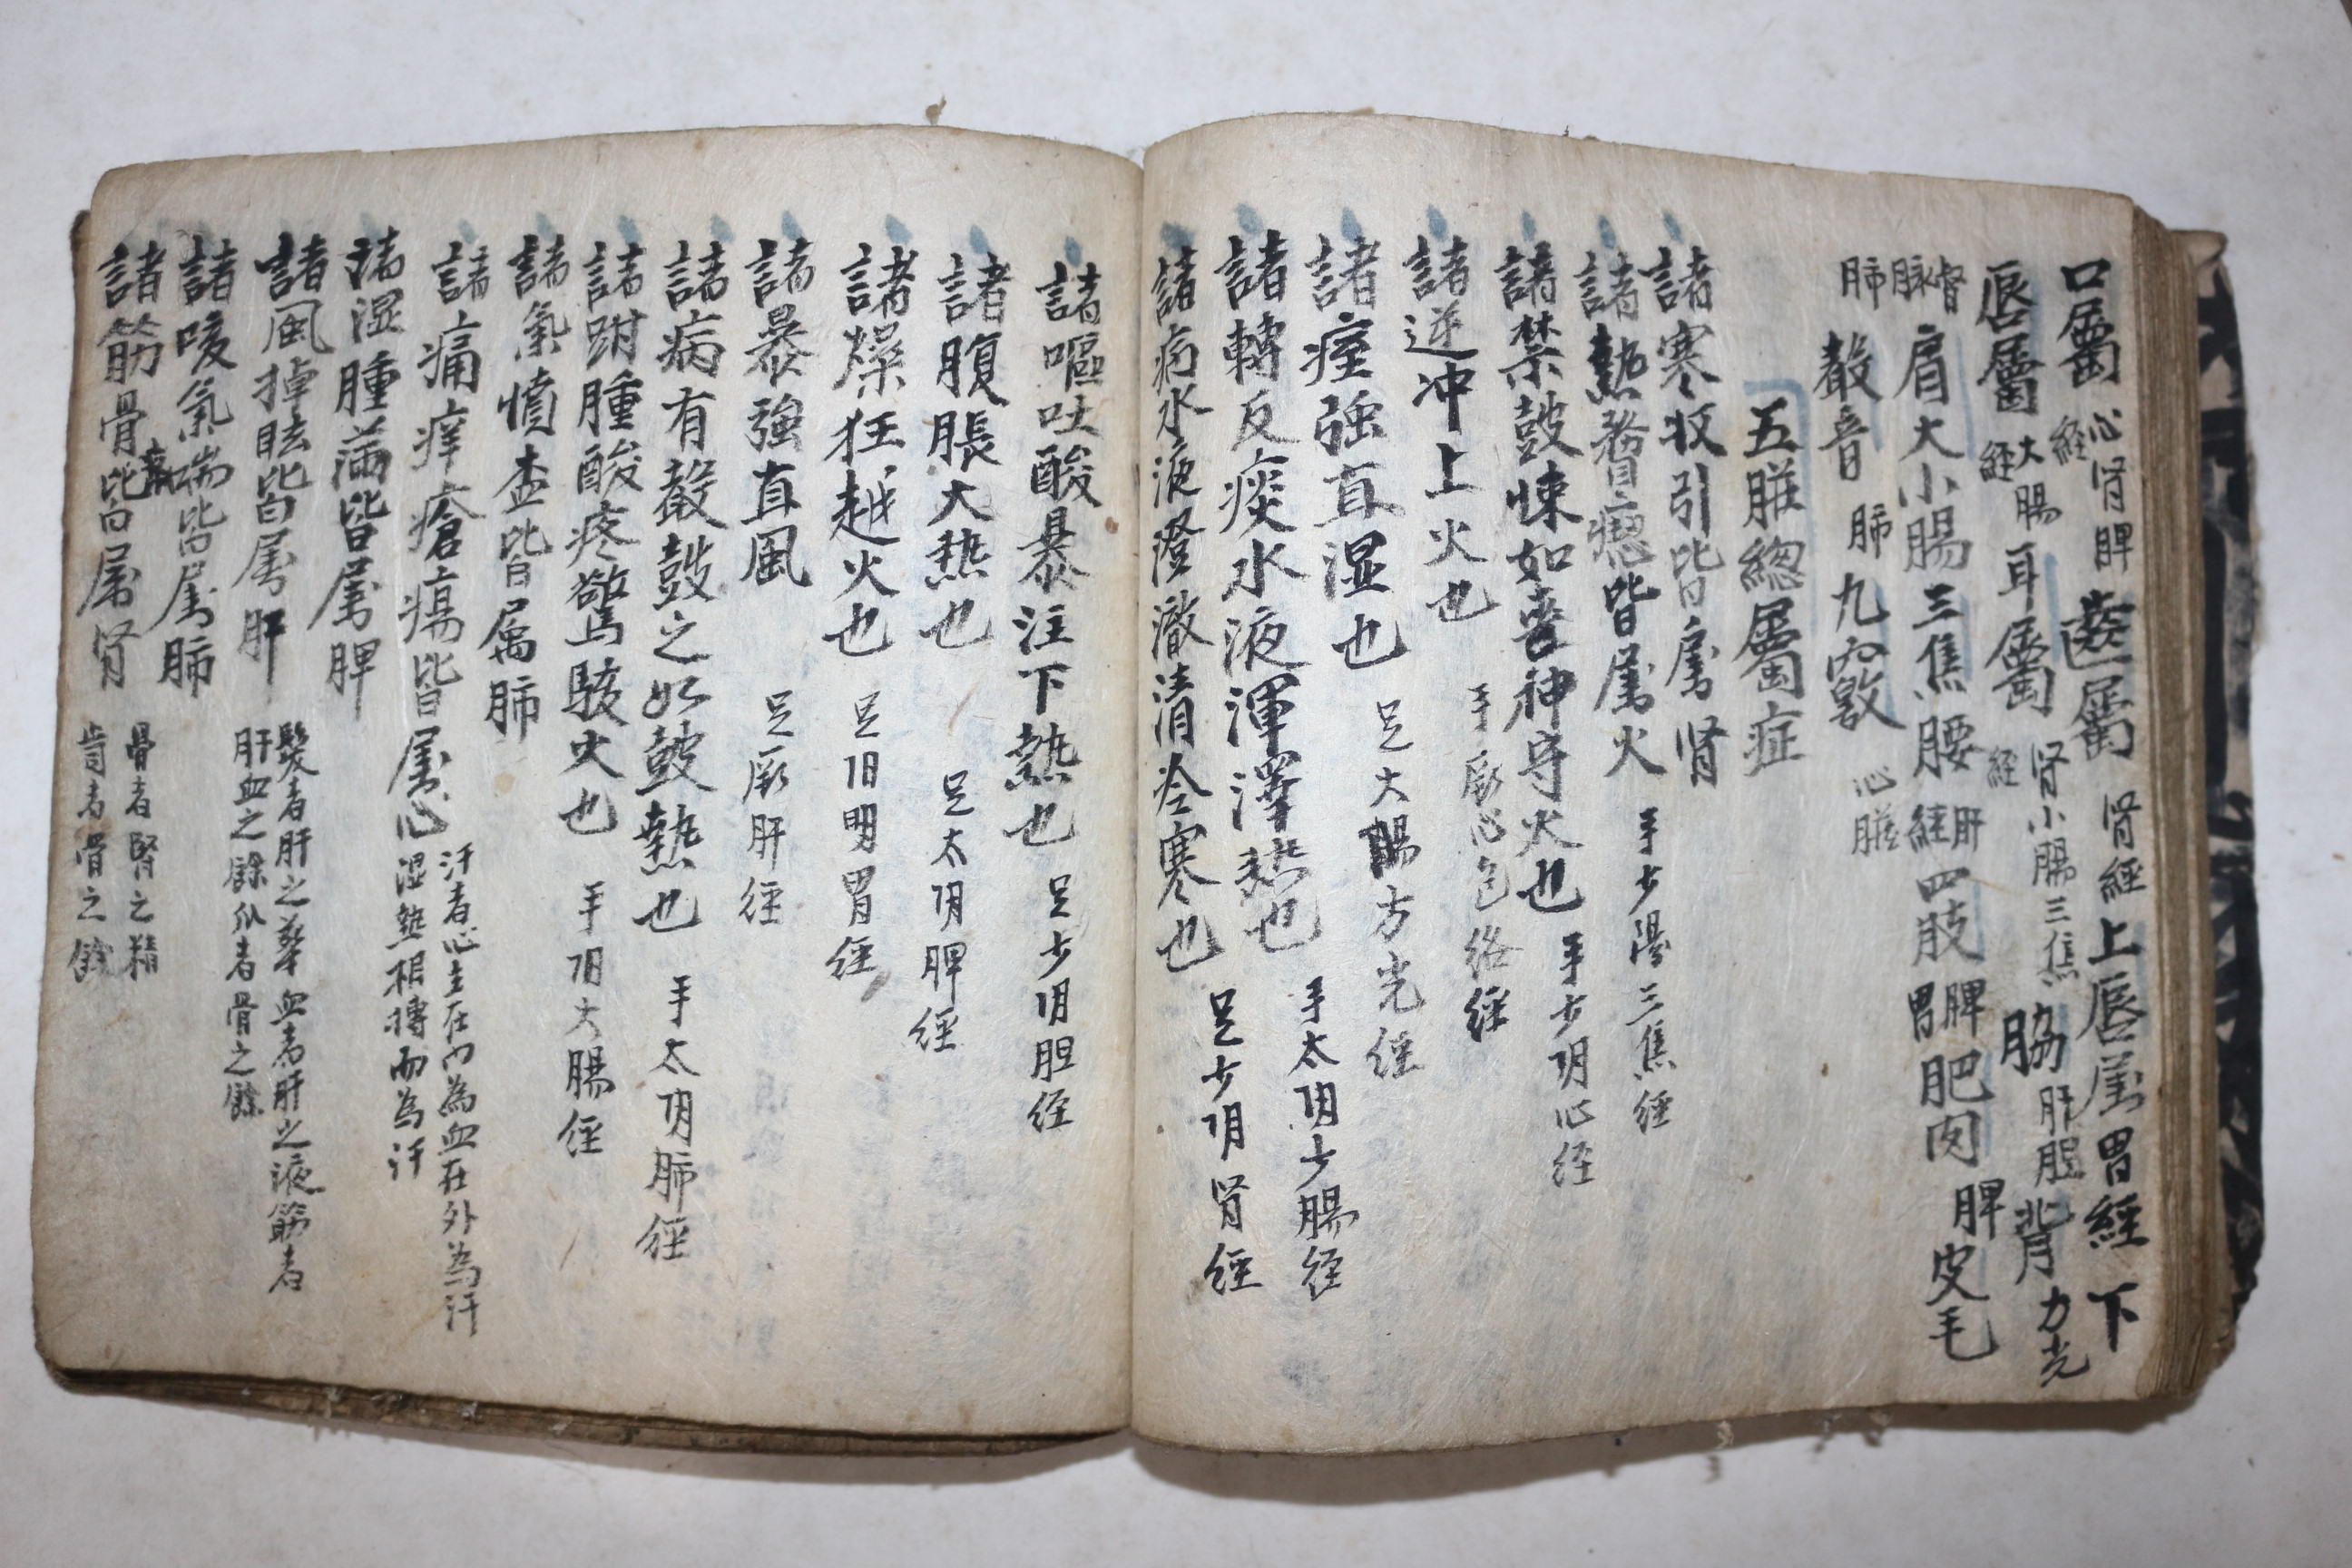 口屬 心腎脾經 齒屬 腎經 上唇屬胃經 下
唇屬 大腸經 耳屬 腎小膓三焦經 脇 肝胆 背 方光
督脉肺 肩 大小腸三焦 腰 肝經 四肢 脾胃 肥肉 脾 皮毛
聲音 肺 九竅 心
五臟總屬症
諸寒收引皆属腎
諸熱瞀瘛皆属火 手少陽三焦經
諸禁鼓悚如喪神守火也 手少阴心経
諸逆冲上火也 手厥心包絡經
諸痓强直湿也 足大膓方光経
諸轉反痰水液渾澤熱也 手太阴少腸径
諸病水液澄澈清冷寒也 足少阴腎經
諸嘔吐酸暴注下熱也 足少阴胆径
諸腹脹大热也 足太阴脾經
諸燥狂越火也 足阳明胃經
諸暴強直風 足厥肝经
諸病有聲鼓之如皷熱也 手太阴肺徑
諸跗腫酸疼驚駭火也 手阳大腸徑
諸氣憤盉皆属肺
諸痛痒瘡瘍皆属心 汗者心主在内為血在外為汗 湿熱相摶而為汗
諸湿腫滿皆属脾
諸風掉眩皆属肝 髮者肝之華血者肝之液筋者 肝血之餘爪者骨之餘
諸咳氣喘皆属肺
諸筋骨皆属腎 骨者腎之精 齒者骨之餘